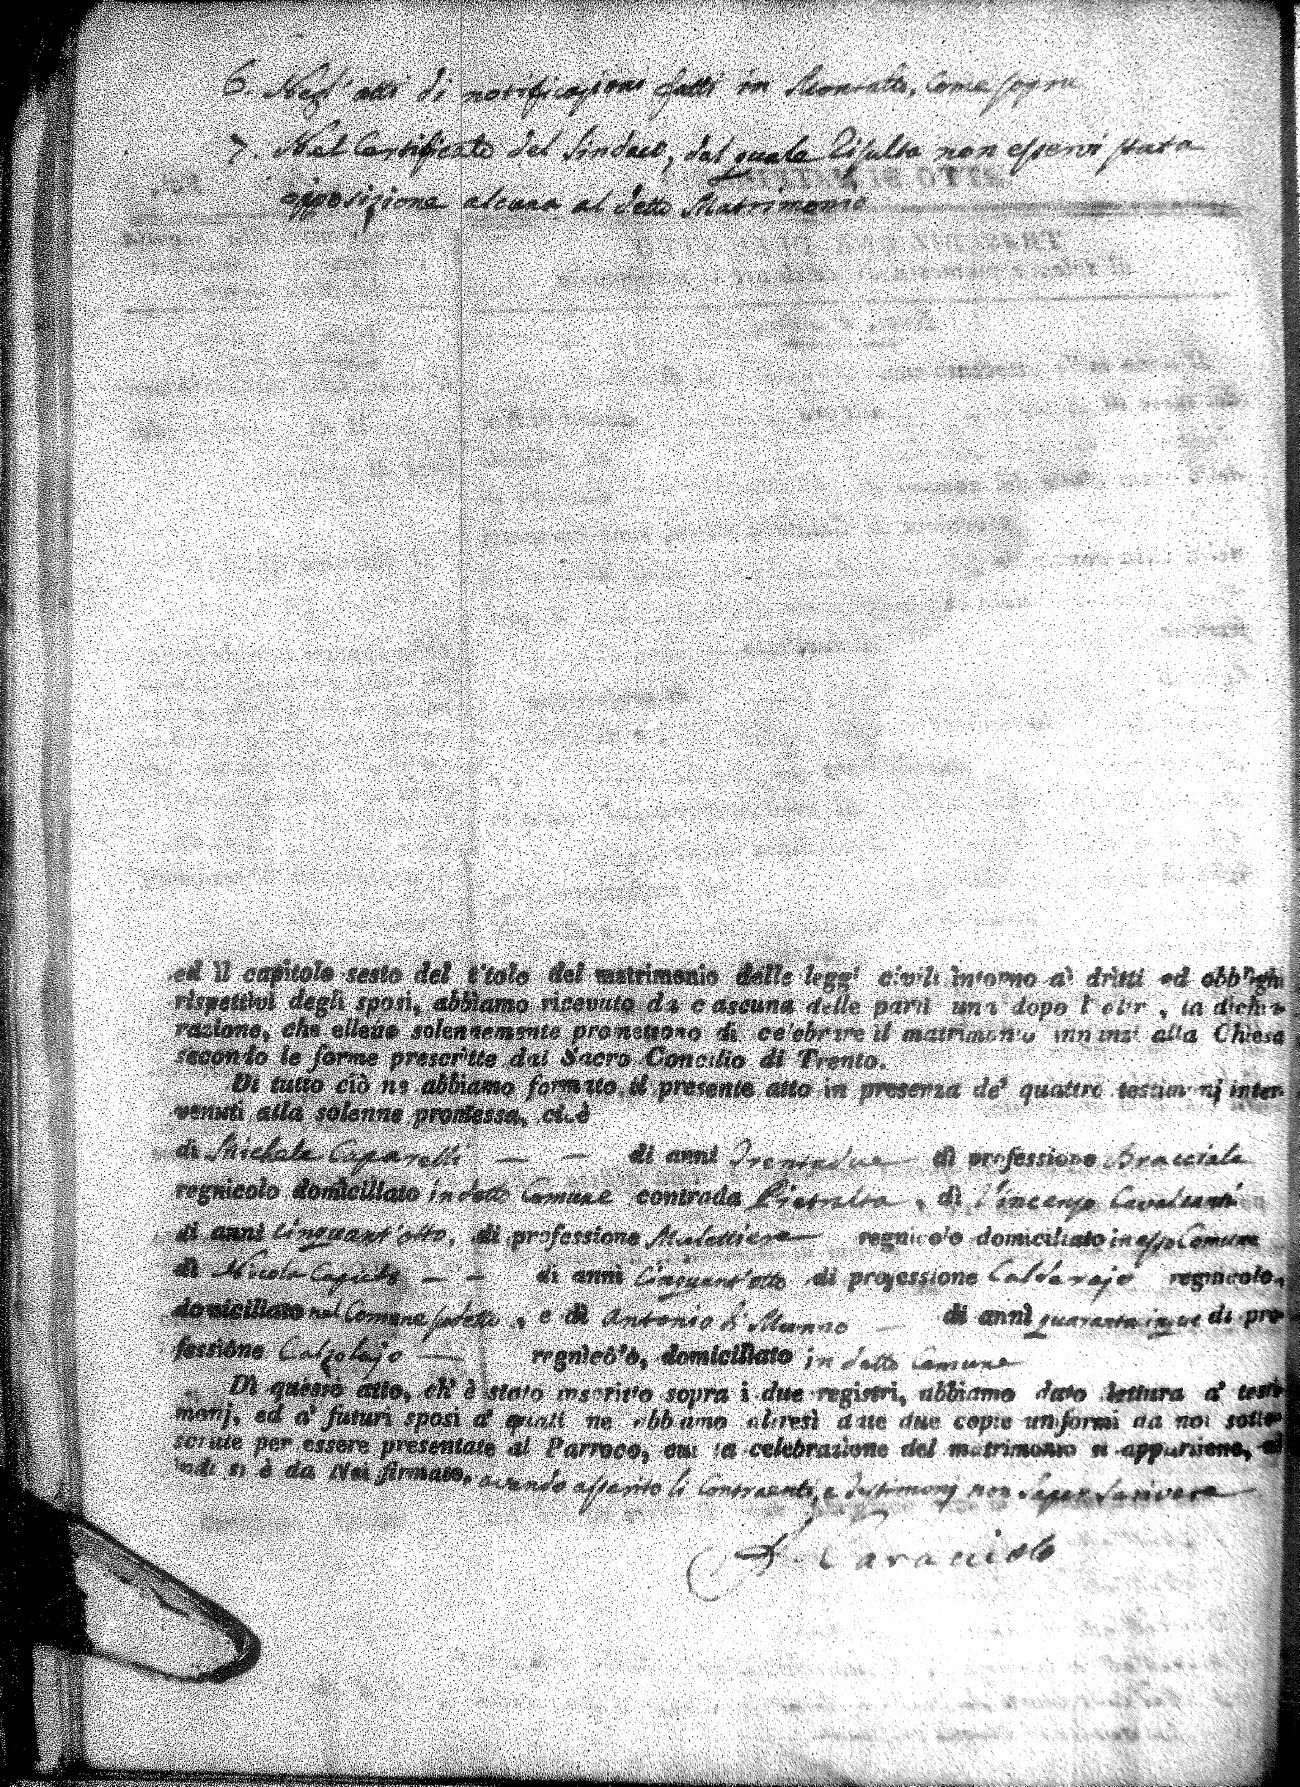 6. Negl'atti di notificazioni fatti in Montalto, come sopra
7. Nel Certificato del Sindaco, dal quale Risulta non esservi stata
opposizione alcuna al detto Matrimonio
ed il capitolo sesto del titolo del matrimonio delle leggi civili intorno a' dritti ed obblighi
rispettivi degli sposi, abbiamo ricevuto da ciascuna delle parti una dopo l'altra, la dichia-
razione, che elleno solennemente promettono di celebrare il matrimonio innanzi alla Chiesa
secondo le forme prescritte dal Sacro Concilio di Trento.
Di tutto ciò ne abbiamo formato il presente atto in presenza de' quattro testimonj inter-
venuti alla solenne promessa, cioè
di Michele Caparelli — — di anni Trentadue di professione Bracciale
regnicolo domiciliato in detto Comune contrada Pietralta, di Vincenzo Cavalcanti
di anni Cinquant'otto, di professione Mulettiere regnicolo domiciliato in esso Comune
di Nicola — — di anni Cinquant'otto di professione Caldarajo regnicolo,
domiciliato nel Comune sudetto, e di Antonio di Munno — di anni quarantacinque di pro-
fessione Calzolajo — regnicolo, domiciliato in detto Comune
Di questo atto, ch' è stato inscritto sopra i due registri, abbiamo dato lettura a' testi-
monj, ed a' futuri sposi a' quali ne abbiamo altresì date due copie uniformi da noi sotto-
scritte per essere presentate al Parroco, cui la celebrazione del matrimonio si appartiene, ed
indi si è da Noi firmato, avendo asserito li Contraenti, e Testimonj non saper scrivere
Caracciolo